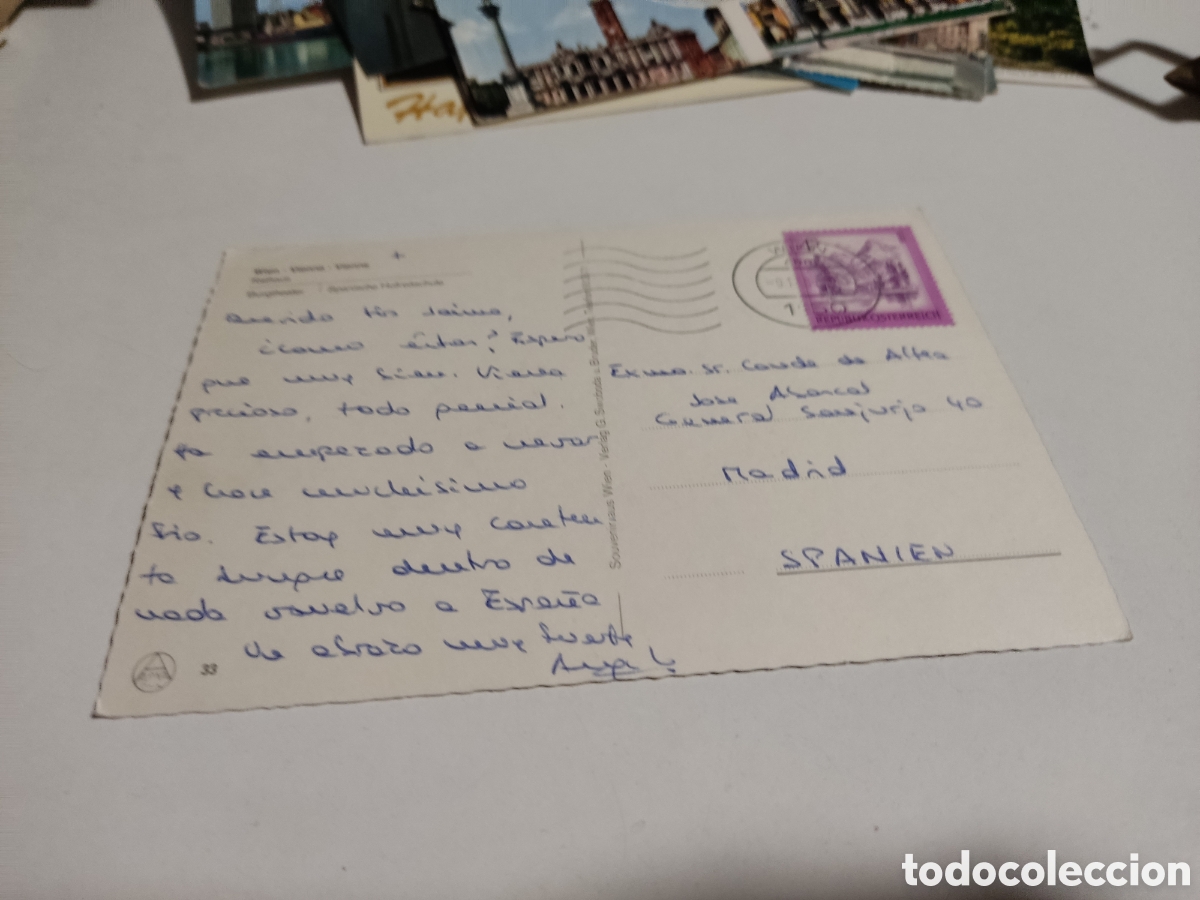 Hap
Wien - Vienna - Vienne
Rathaus
Burgtheater Spanische Hofreitschule
Querido tío Jaime,
¿Como estas? Espero
que muy bien. Viena
precioso, todo genial.
ha empezado a nevar
y hace muchisimo
frio. Estoy muy conten
to aunque dentro de
nada vuelvo a España
Un abrazo muy fuerte
Angel
33
Souvenirhaus Wien - Verlag G. Swoboda u. Bruder, Wien
WIEN
REPUBLIK ÖSTERREICH
Exmo. Sr. Conde de Altea
Jose Abascal
General Sanjurjo 40
Madrid
SPANIEN
todocoleccion